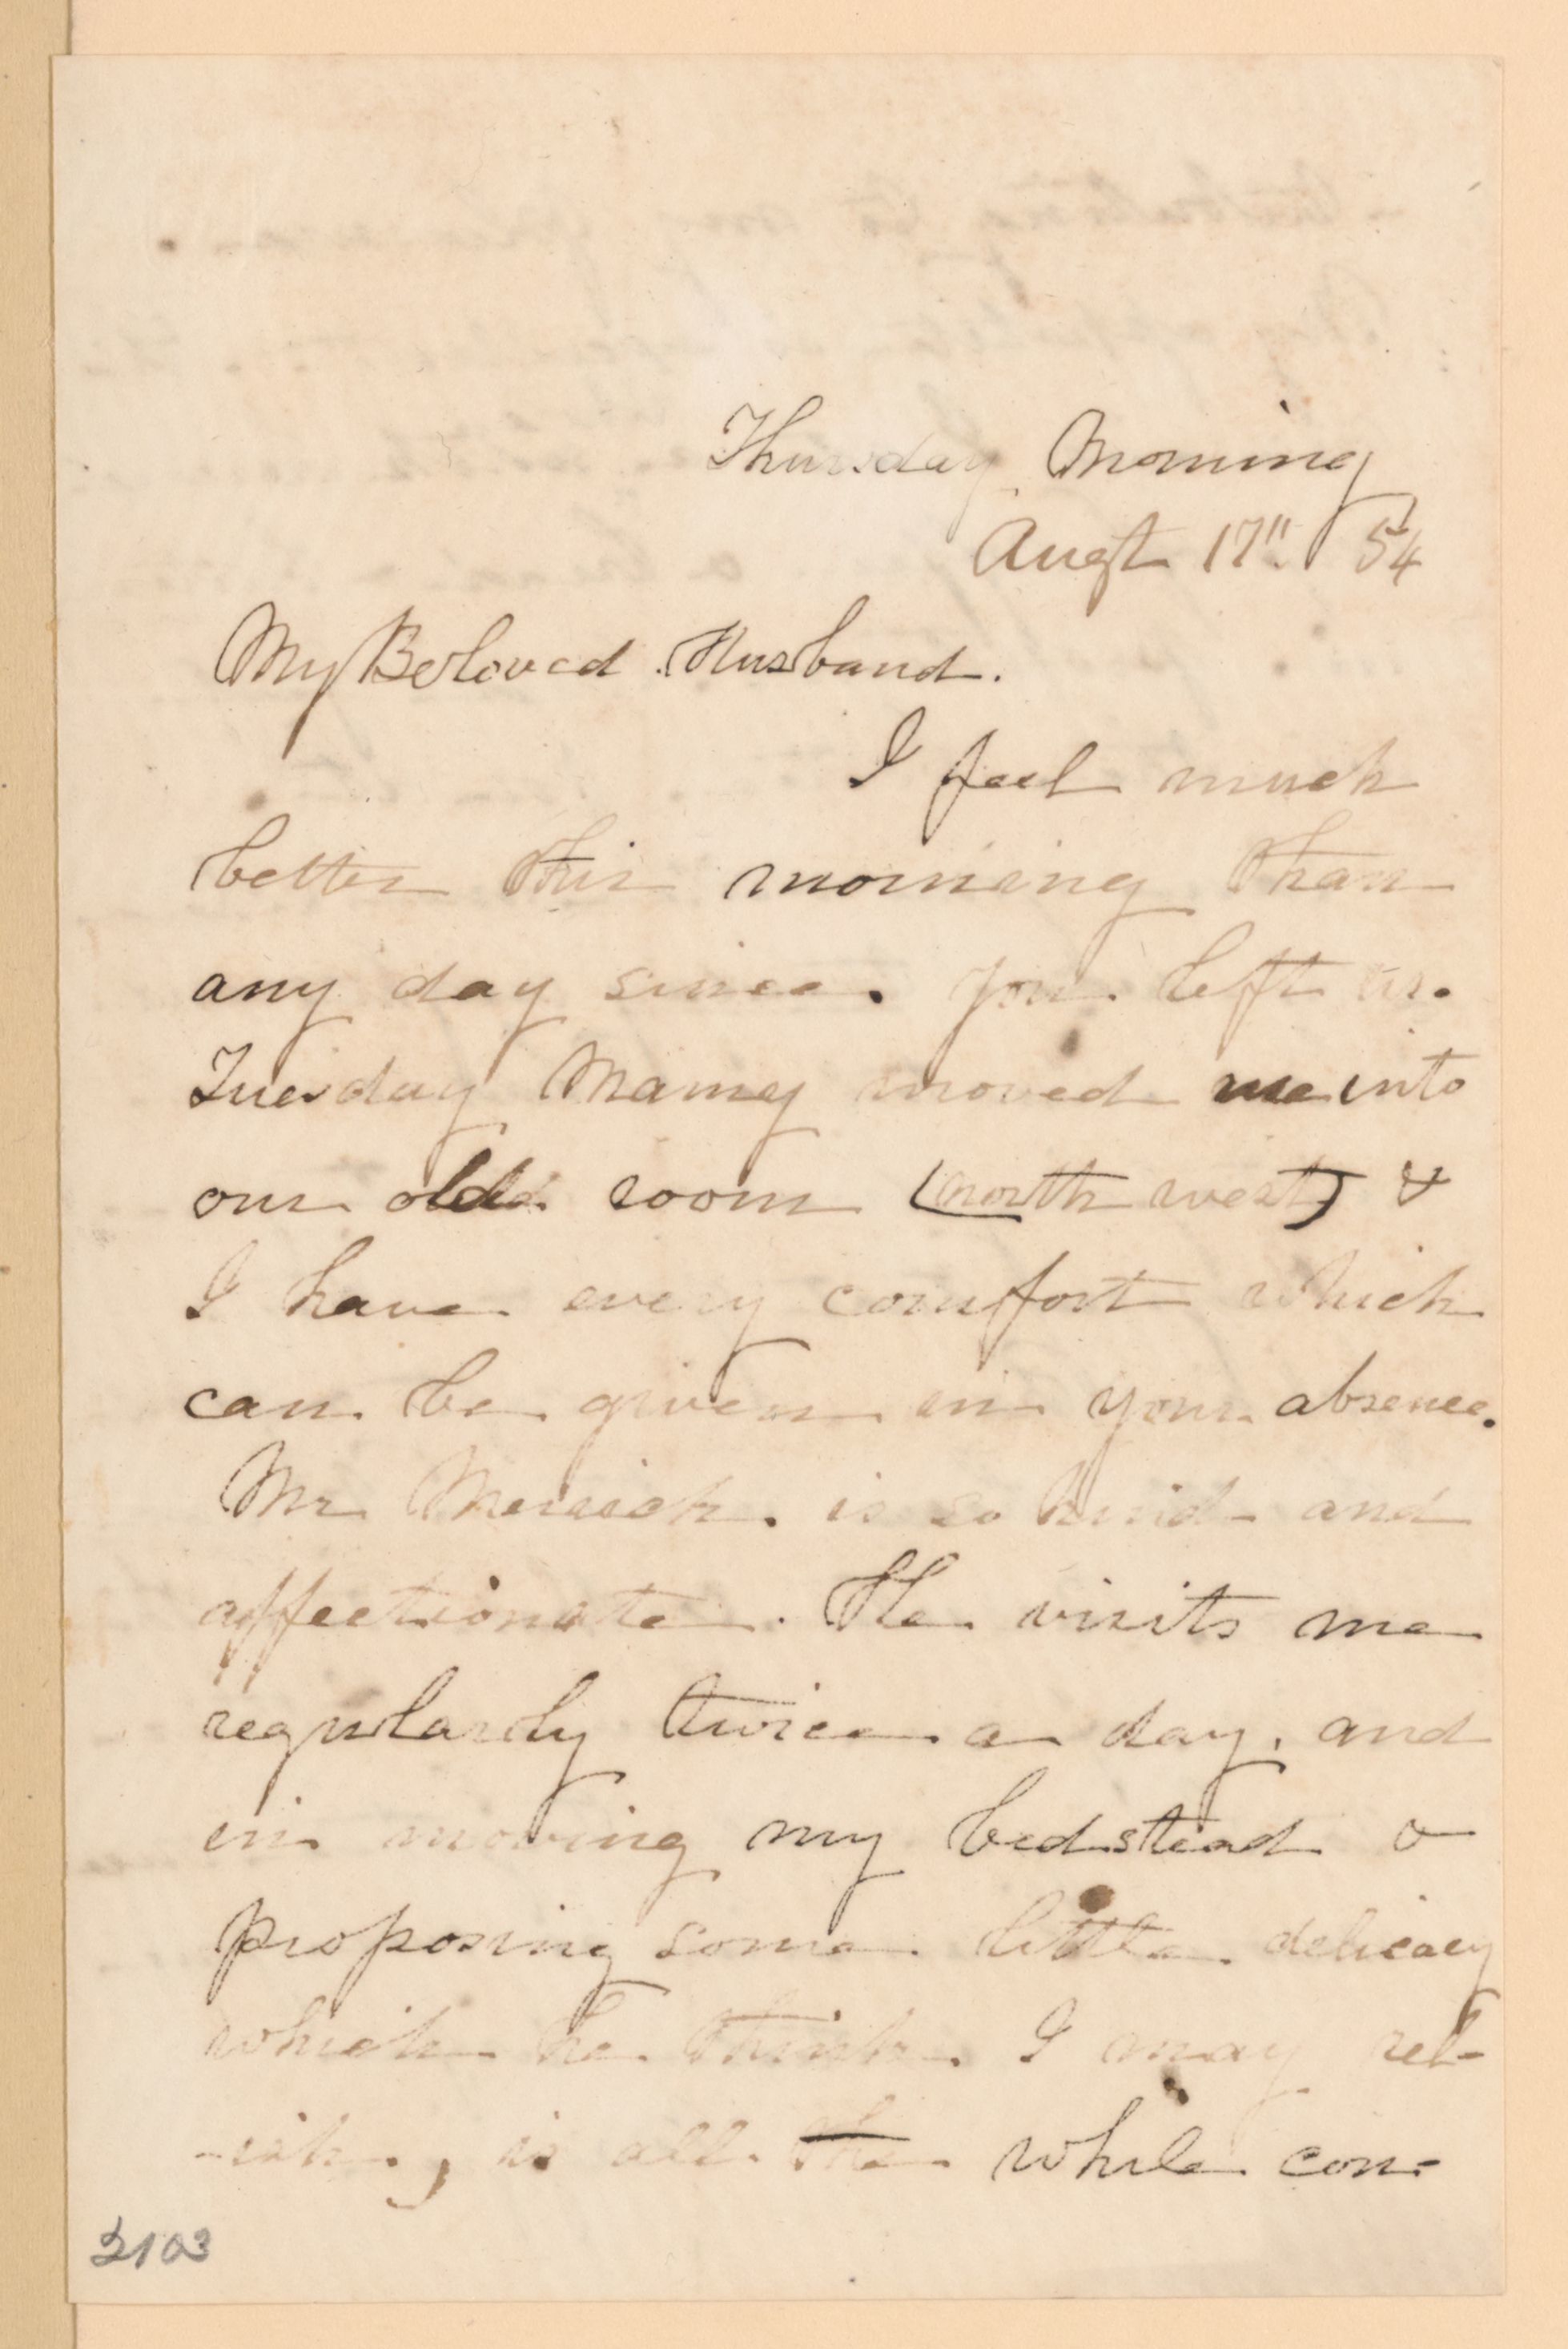 Thursday Morning
Augt 17" 54
My Beloved Husband.
I feel much
better this morning than
any day since. you left us.
Tuesday Mamy moved me into
our old room (north west) &
I have every comfort which
can be given in your absence.
Mr Merrick. is so kind and
affectionate. He visits me
regularly twice a day, and
in moving my bedstead &
proposing some little delicacy
which he thinks I may rel-
-ish, is all the while con-
2103